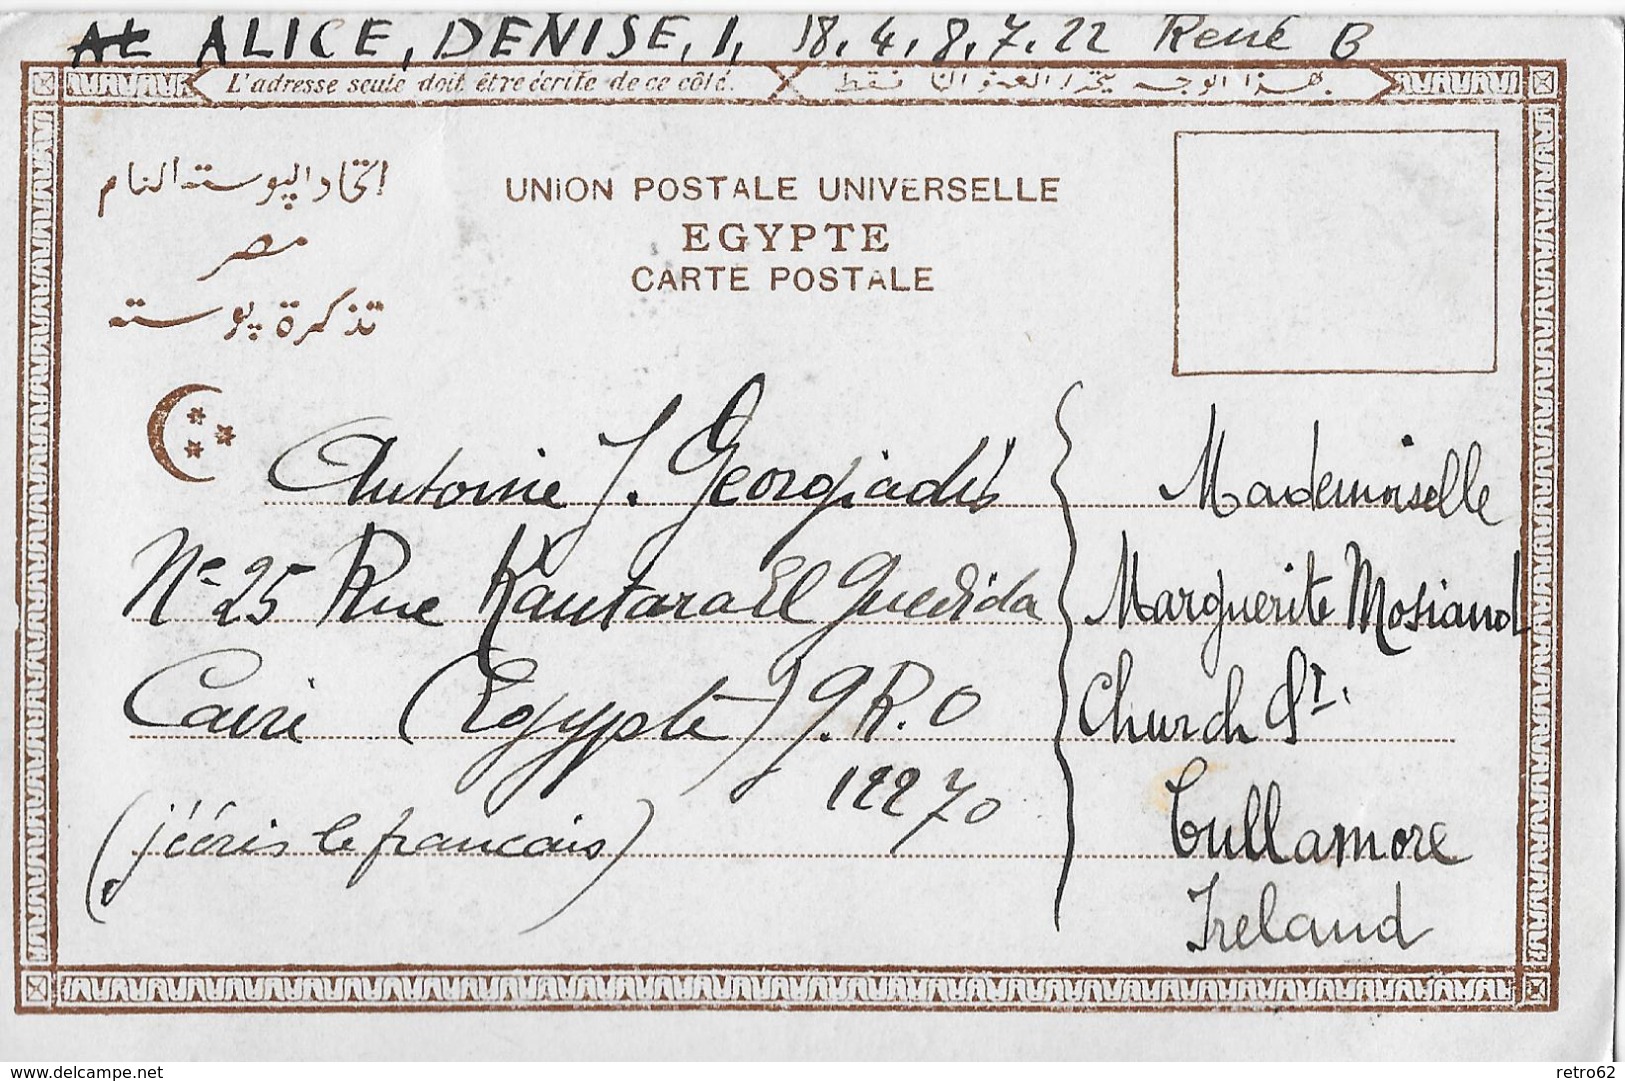 ALICE, DENISE, 1, 18, 4, 8, 7. 22 René B
L'adresse seule doit être écrite de ce côté.
اتحاد البوسته العام
UNION POSTALE UNIVERSELLE
مصر
EGYPTE
CARTE POSTALE
تذكرة بوسته
Antoine J. Georgiadis
No 25 Rue Kantara El Guedida
Caire (Egypte) G.R.O
12270
(j'écris le francais)
Mademoiselle
Marguerite
Church St.
Tullamore
Ireland
www.delcampe.net
retro62